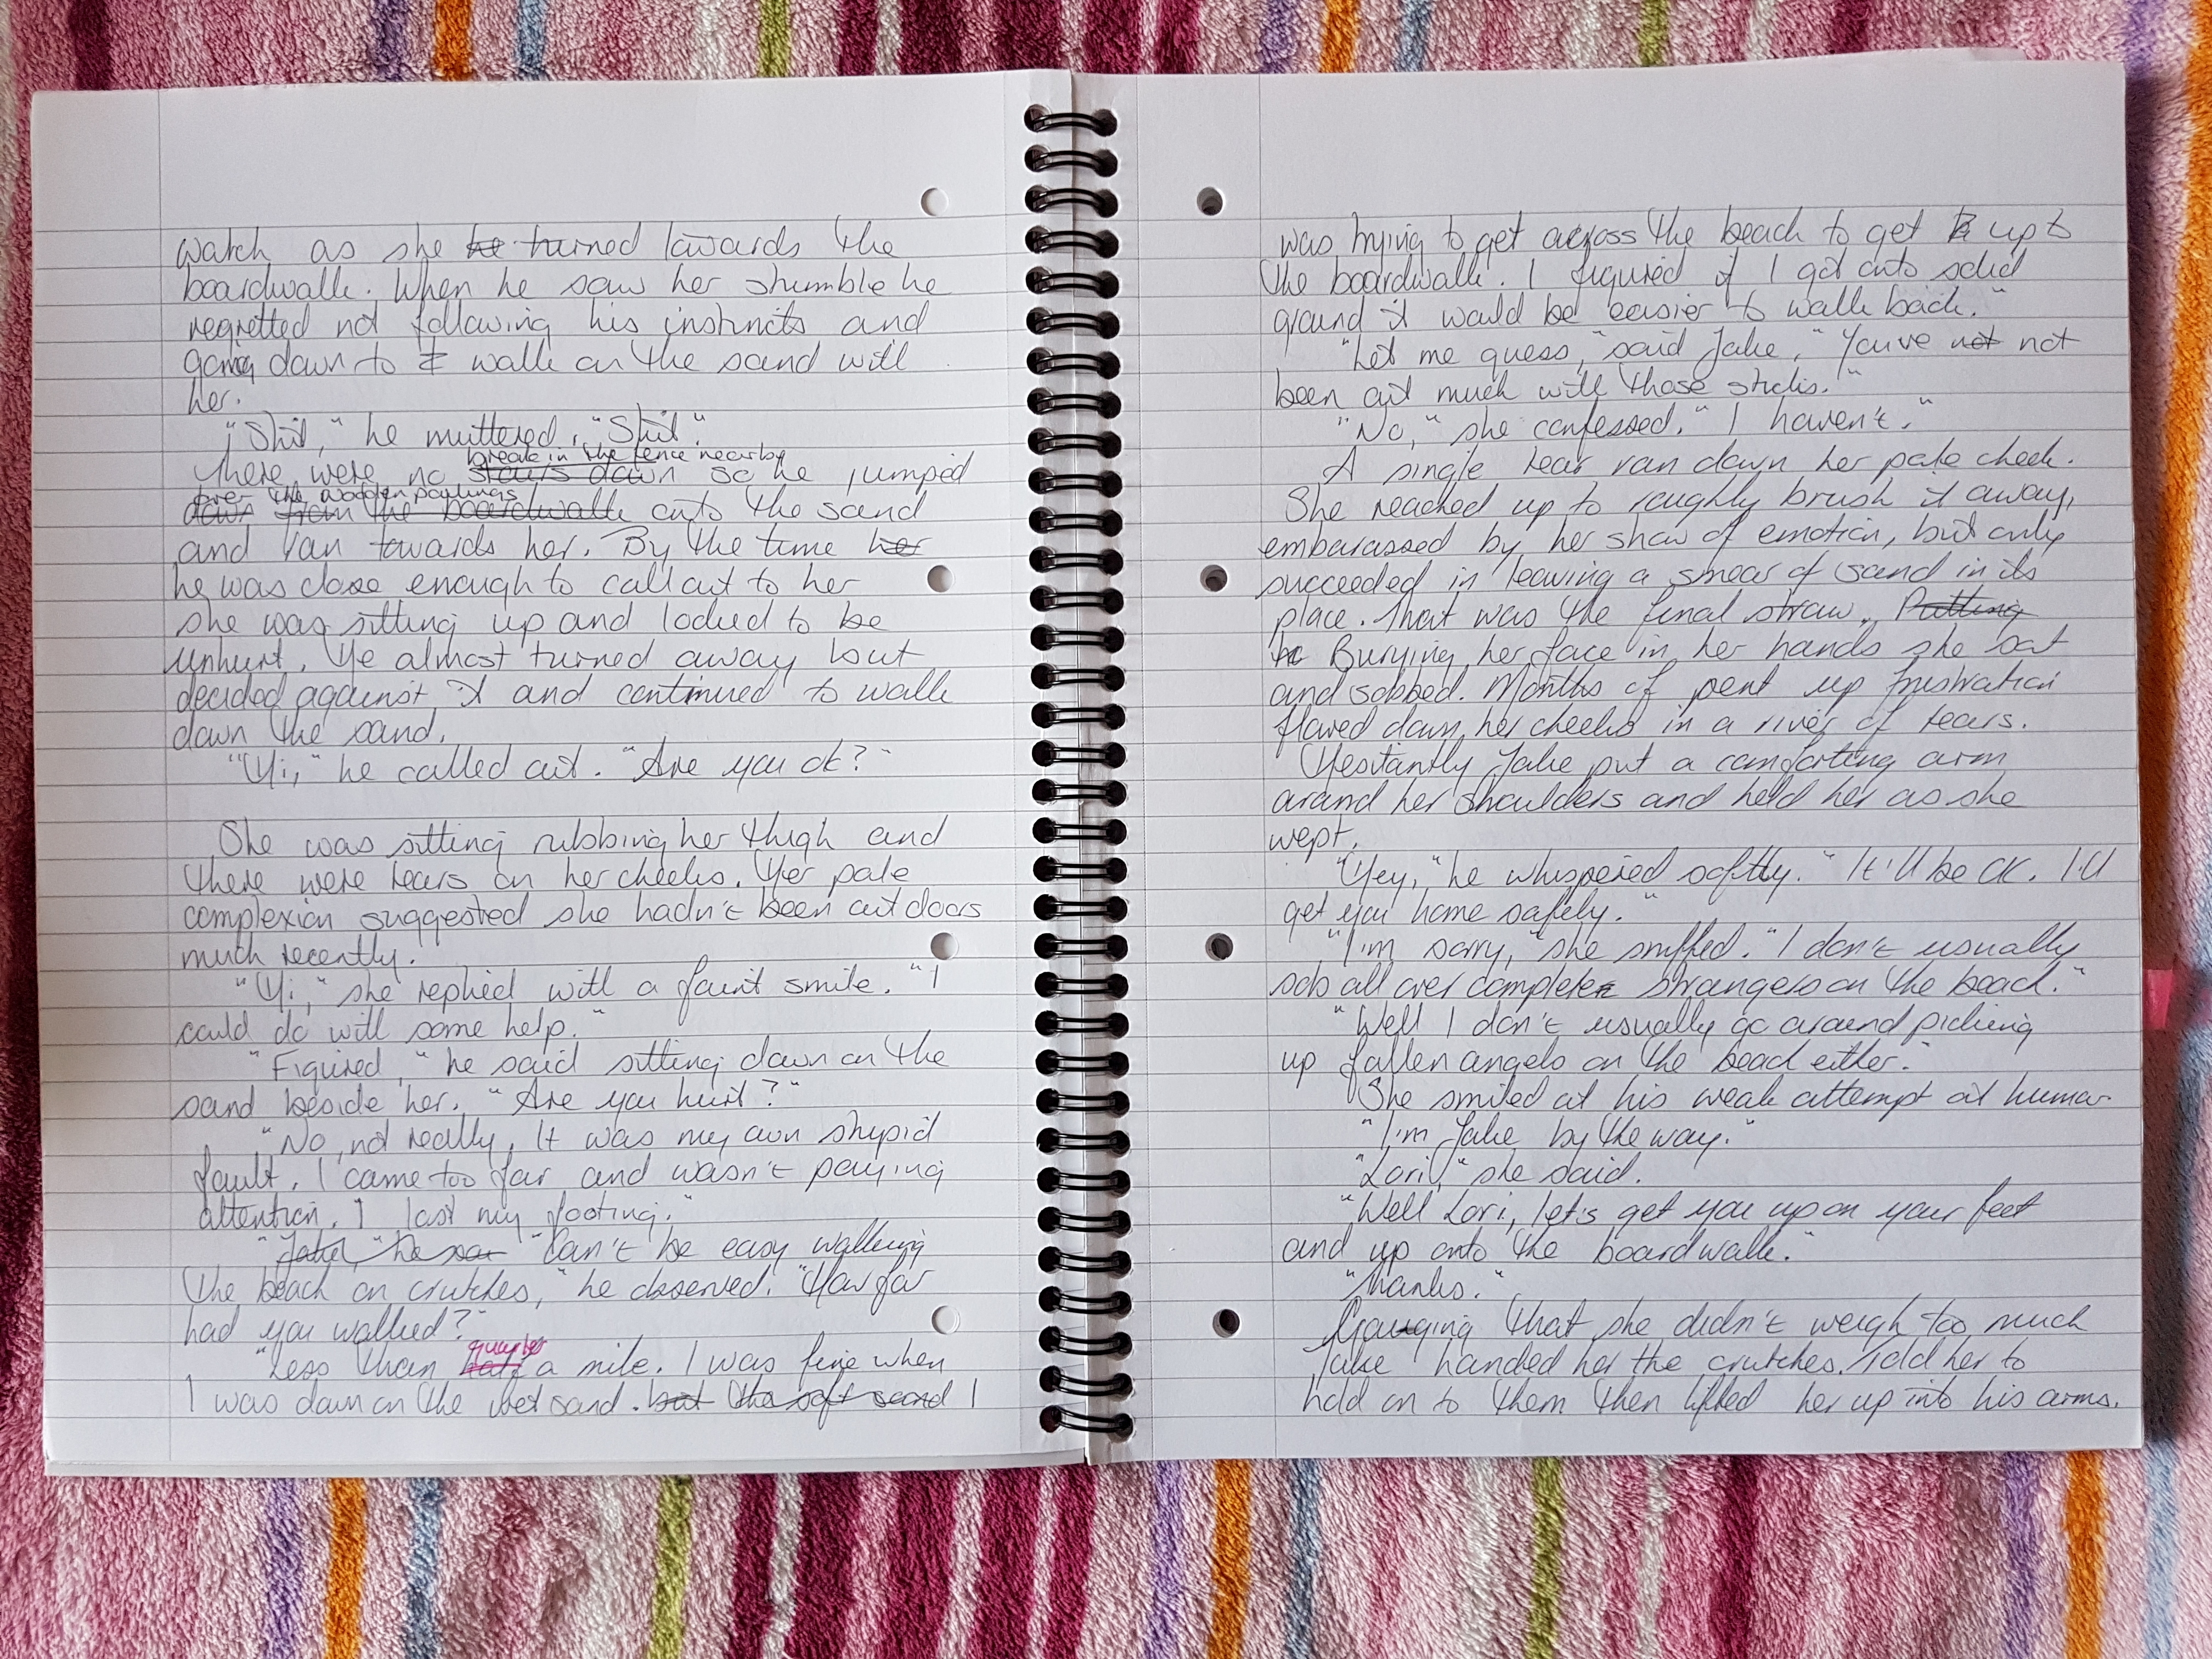 watch as she he turned towards the
boardwalk. When he saw her stumble he
regretted not following his instincts and
going down to t walk on the sand with
her.
"Shit," he muttered, "Shit".
break in the fence nearby
There were no stairs down so he jumped
over the wooden pailings
down from the boardwalk onto the sand
and ran towards her. By the time her
he was close enough to call out to her
she was sitting up and looked to be
unhurt. He almost turned away but
decided against it and continued to walk
down the sand.
"Hi," he called out. "Are you ok?"
She was sitting rubbing her thigh and
there were tears on her cheeks. Her pale
complexion suggested she hadn't been out doors
much recently.
"Hi," she replied with a faint smile. "I
could do with some help."
"Figured," he said sitting down on the
sand beside her. "Are you hurt?"
"No, not really. It was my own stupid
fault. I came too far and wasn't paying
attention. I lost my footing."
"Jake," he sa "Can't be easy walking
the beach on crutches," he observed. "How far
had you walked?"
quarter
"Less than half a mile. I was fine when
I was down on the wet sand. but the soft sand I
was trying to get across the beach to get up to
the boardwalk. I figured if I got onto solid
ground it would be easier to walk back."
"Let me guess," said Jake, "You've not not
been out much with those sticks."
"No," she confessed. "I haven't."
A single tear ran down her pale cheek.
She reached up to roughly brush it away,
embarassed by her show of emotion, but only
succeeded in leaving a smear of sand in its
place. That was the final straw. Putting
he Burying her face in her hands she sat
and sobbed. Months of pent up frustration
flowed down her cheeks in a river of tears.
Hesitantly Jake put a comforting arm
around her shoulders and held her as she
wept.
"Hey," he whispered softly. "It'll be OK. I'll
get you home safely."
"I'm sorry," she sniffed. "I don't usually
sob all over complete strangers on the beach."
"Well I don't usually go around picking
up fallen angels on the beach either."
She smiled at his weak attempt at humor
"I'm Jake by the way."
"Lori," she said.
"Well Lori, let's get you up on your feet
and up onto the boardwalk."
"Thanks."
Gauging that she didn't weigh too much
Jake handed her the crutches. Told her to
hold on to them then lifted her up into his arms.